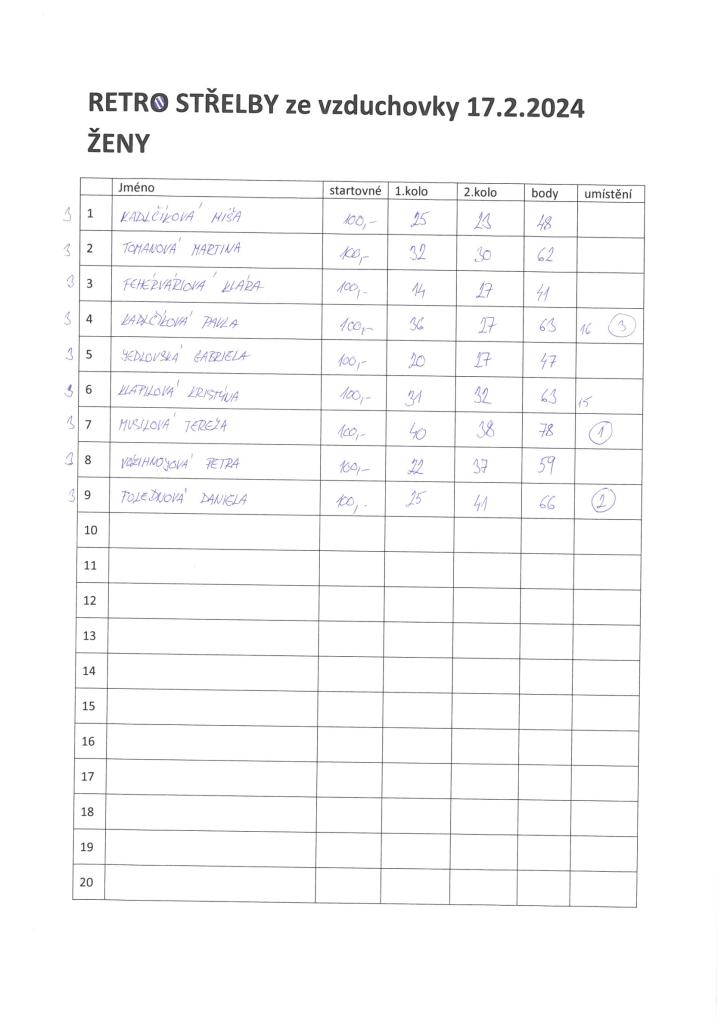 RETRO STŘELBY ze vzduchovky 17.2.2024
ŽENY
Jméno startovné 1.kolo 2.kolo body umístění
3 1 KADLČÍKOVÁ MIŠA 100,- 25 23 48
3 2 TOMANOVÁ MARTINA 100,- 32 30 62
3 3 FEHÉRVÁRIOVÁ KLÁRA 100,- 14 27 41
3 4 KADLČÍKOVÁ PAVLA 100,- 36 27 63 16 3
3 5 JEDLOVSKÁ GABRIELA 100,- 20 27 47
3 6 KLAPILOVÁ KRISTÝNA 100,- 31 32 63 15
3 7 MUSILOVÁ TEREZA 100,- 40 38 78 1
3 8 PETRA 100,- 22 37 59
3 9 POLEDŇOVÁ DANIELA 100,- 25 41 66 2
10
11
12
13
14
15
16
17
18
19
20